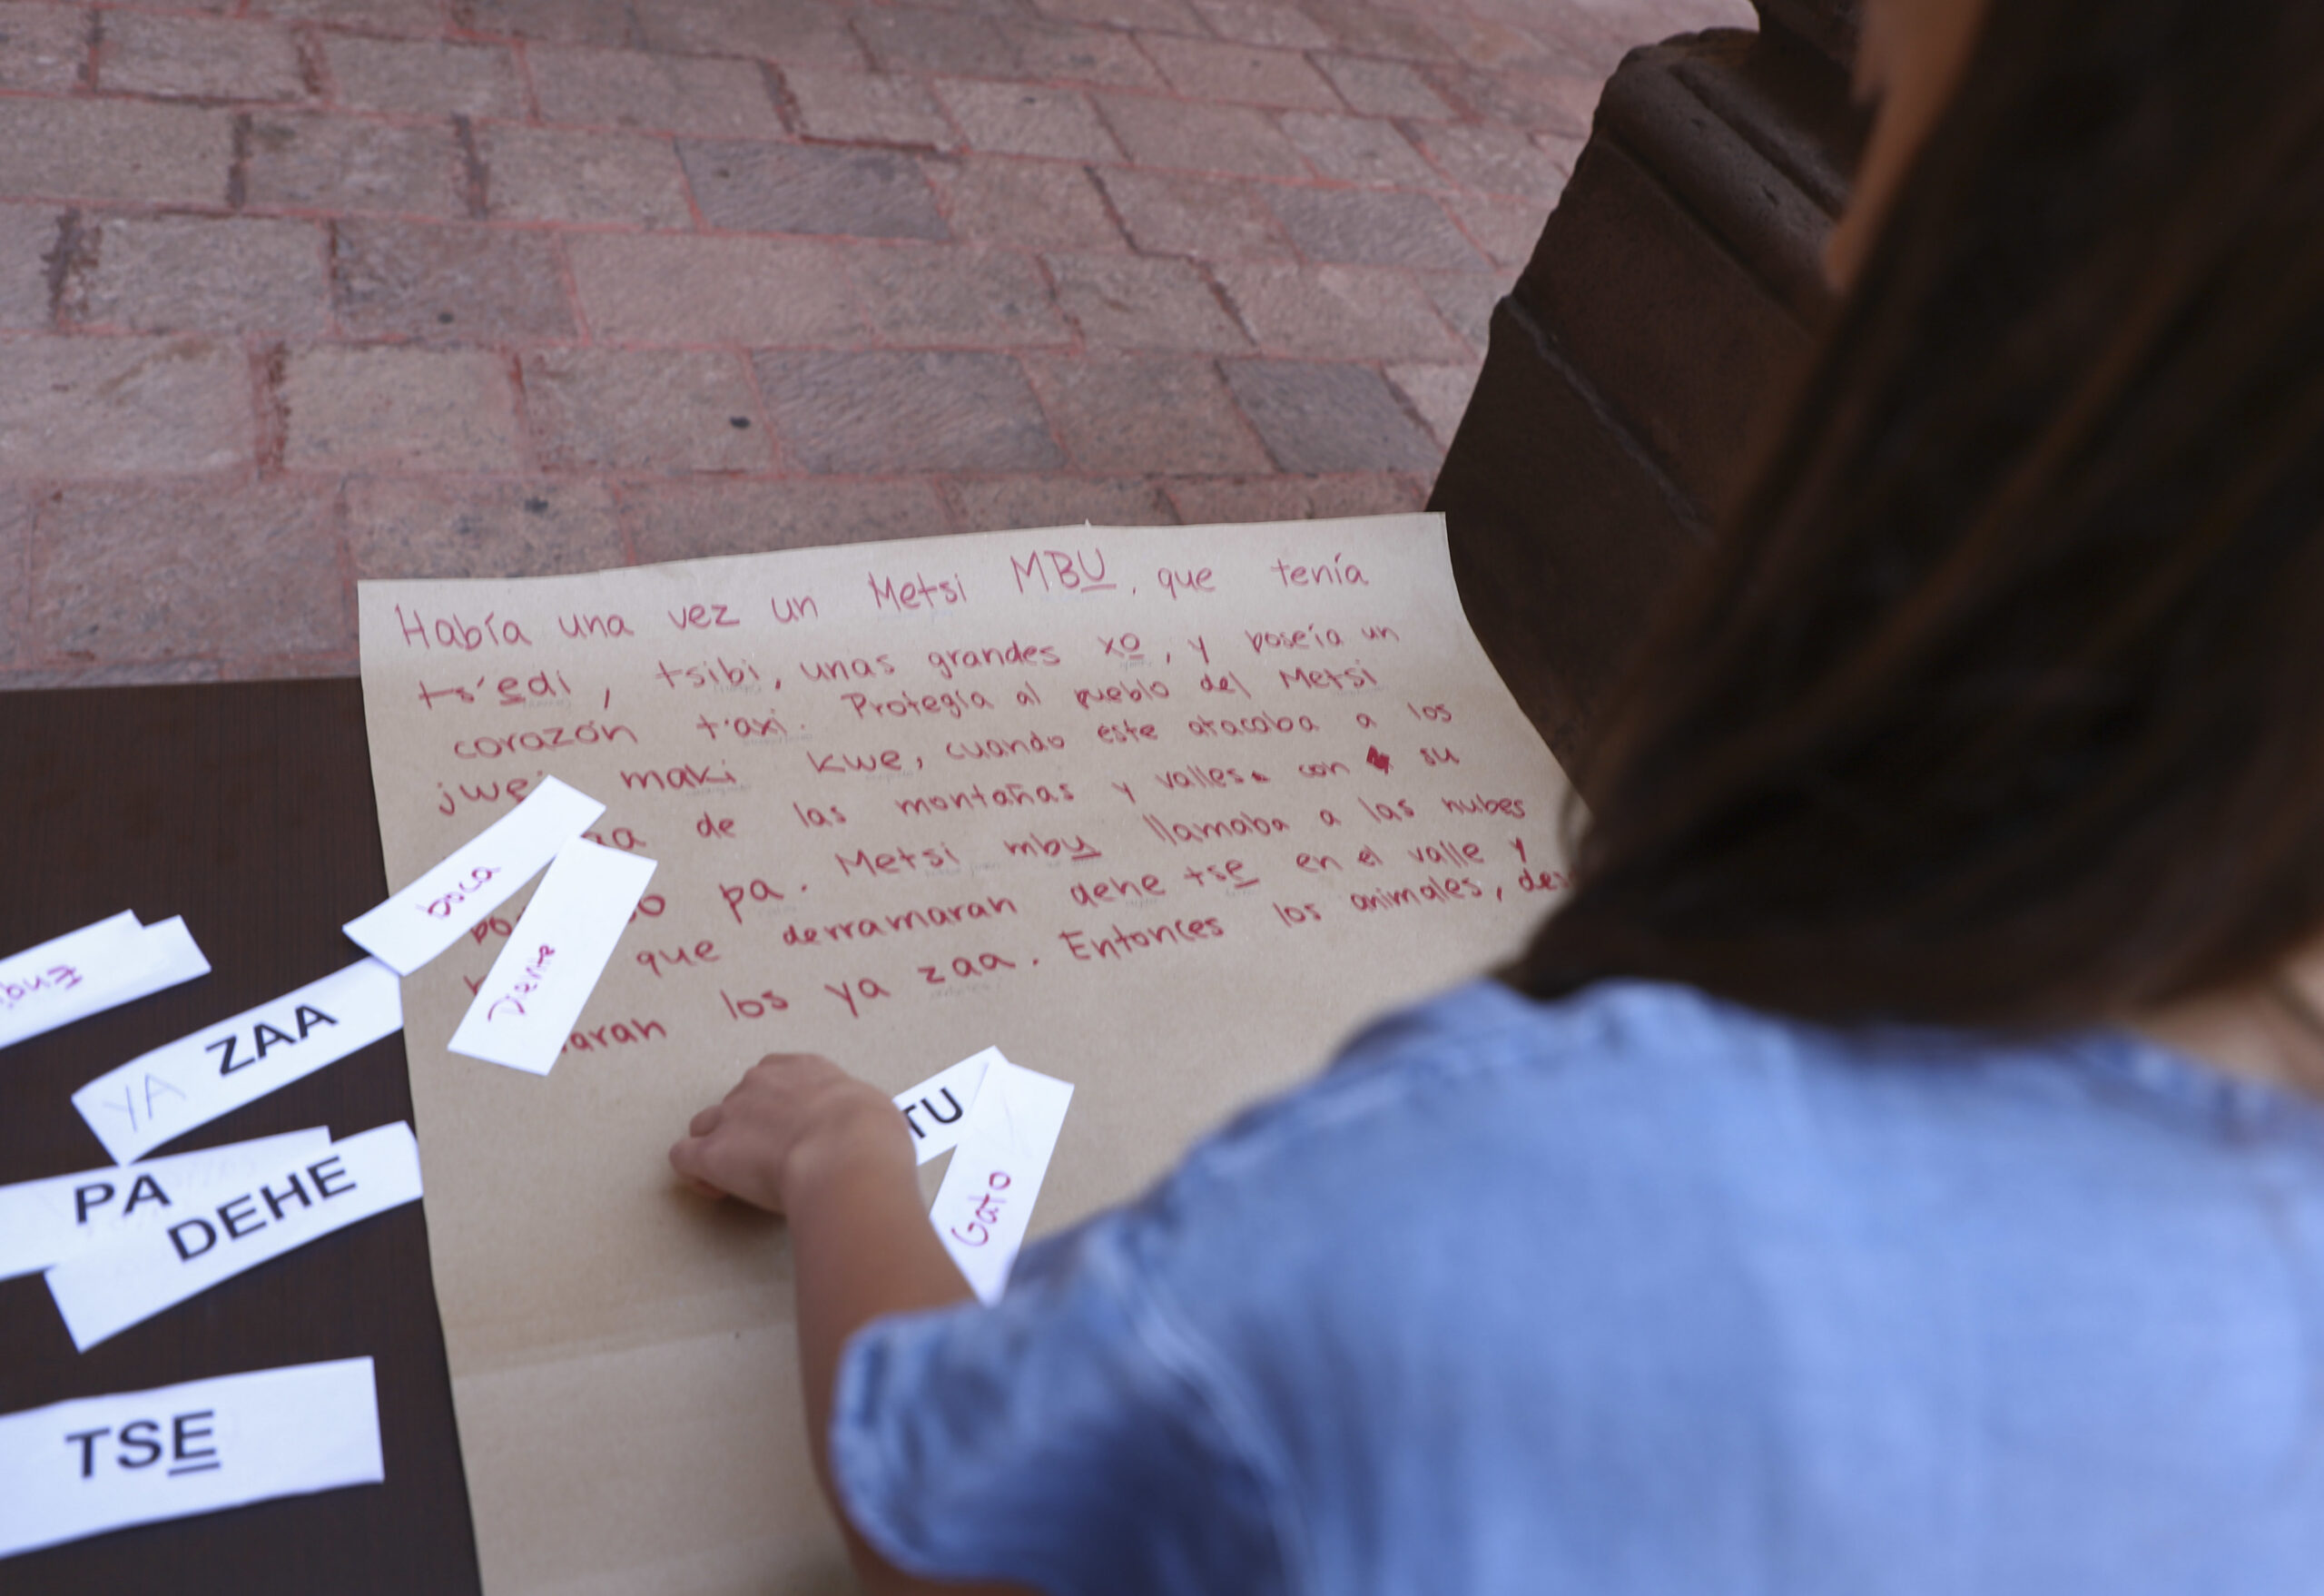 Había una vez un Metsi MBU̲, que tenía
ts'e̲di, tsibi, unas grandes xo̲, y poseía un
corazón t'axi. Protegía al pueblo del Metsi
maki kwe, cuando este atacaba a los
de las montañas y valles con su
pa. Metsi mbu̲ llamaba a las nubes
que derramaran dehe tse̲ en el valle y
los ya zaa. Entonces los animales,
boca
Diente
YA ZAA
PA
DEHE
TSE̲
TU
Gato